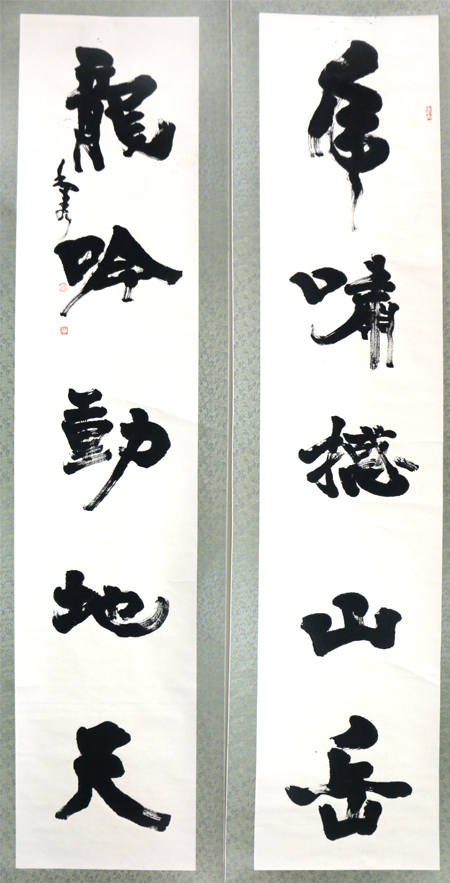 虎嘯撼山岳
龍吟動地天